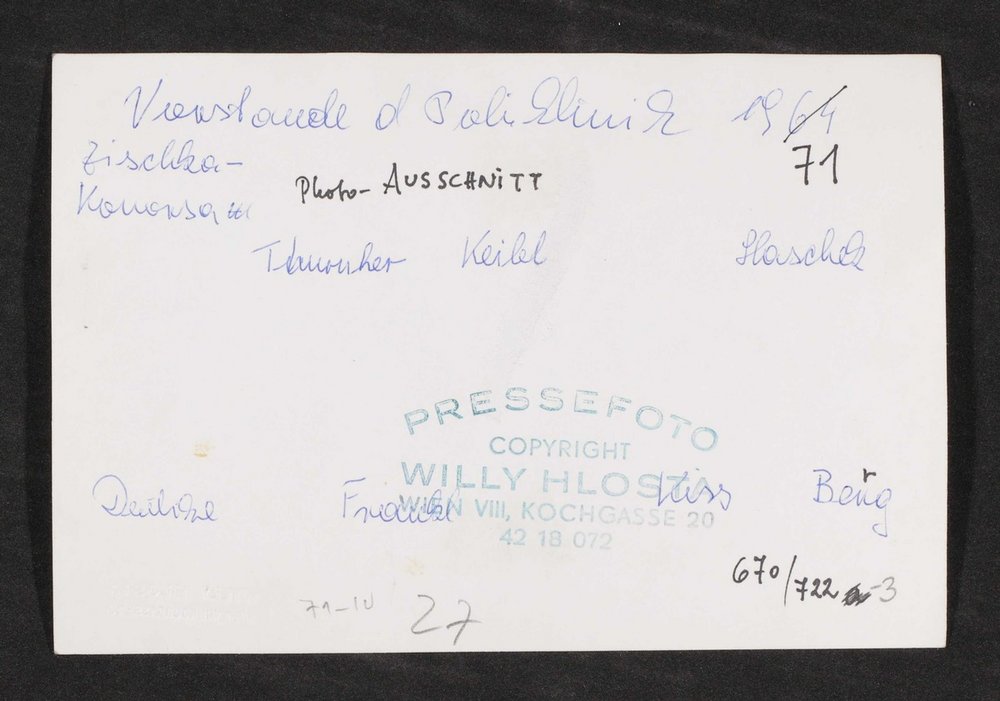 Vorstände d Poliklinik 1964
71
Zischka-
Konorsa
Photo-AUSSCHNITT
Keibl
Haschek
PRESSEFOTO
COPYRIGHT
WILLY HLOSTA
WIEN VIII, KOCHGASSE 20
42 18 072
Frankl
Kiss
Berg
670/722 -3
27